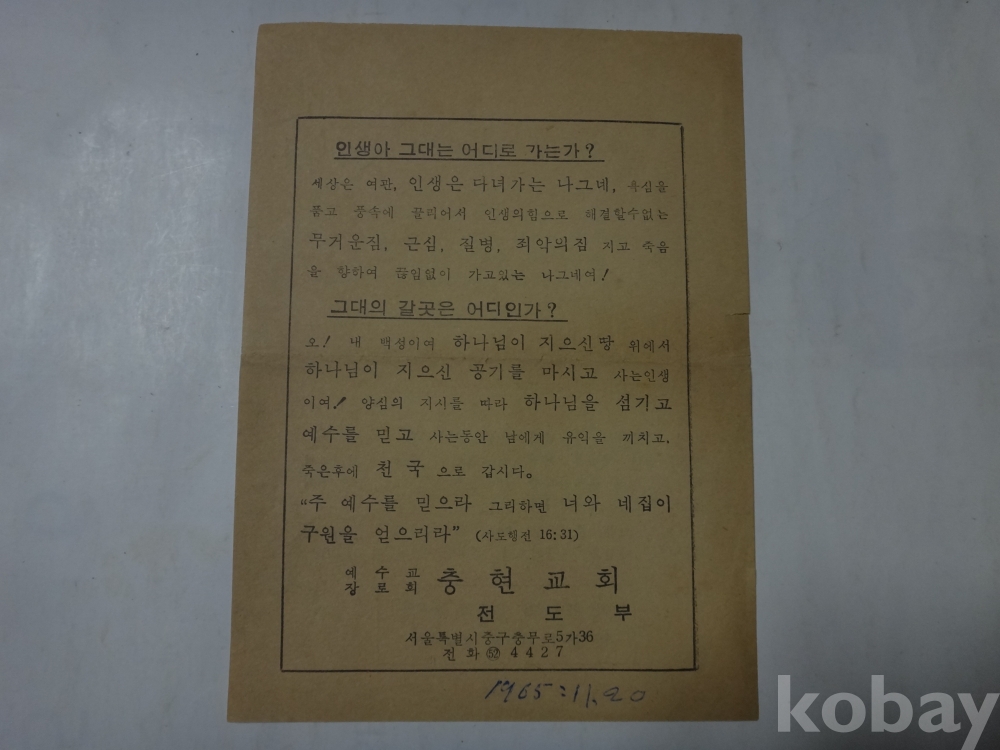 인생아 그대는 어디로 가는가?
세상은 여관, 인생은 다녀가는 나그네, 욕심을
품고 풍속에 끌리어서 인생의힘으로 해결할수없는
무거운짐, 근심, 질병, 죄악의짐 지고 죽음
을 향하여 끊임없이 가고있는 나그네여!
그대의 갈곳은 어디인가?
오! 내 백성이여 하나님이 지으신땅 위에서
하나님이 지으신 공기를 마시고 사는인생
이여! 양심의 지시를 따라 하나님을 섬기고
예수를 믿고 사는동안 남에게 유익을 끼치고.
죽은후에 천국 으로 갑시다.
“주 예수를 믿으라 그리하면 너와 네집이
구원을 얻으리라” (사도행전 16:31)
예수교
장로회 충현교회
전도부
서울특별시중구충무로5가36
전화 52 4427
1965:11.20
kobay